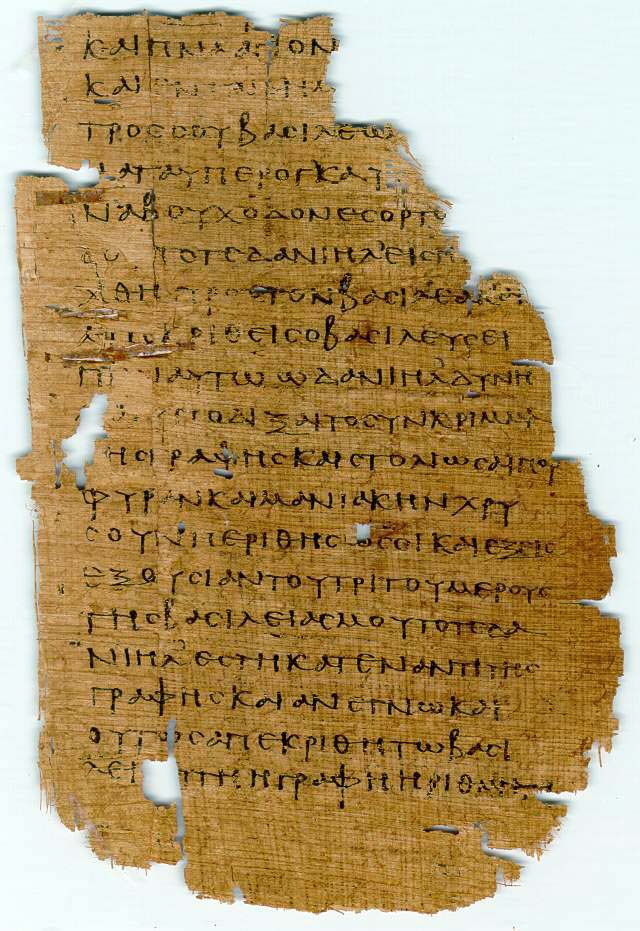 ΚΑΙΠΝΑΑΓΙΟΝ
ΚΑΙΕΝΤΑΙϹΗΜ
ΤΡΟϹϹΟΥΒΑϹΙΛΕΩ
ΥΠΕΡΟΓΚΑ
ΝΑΒΟΥΧΟΔΟΝΕϹΟΡΤΟ
ΤΟΤΕΔΑΝΙΗΛΕΙϹΗ
ΧΘΗΠΡΟϹΤΟΝΒΑϹΙΛΕΑΚΑΙ
ΑΠΟΚΡΙΘΕΙϹΟΒΑϹΙΛΕΥϹΕΙ
ΠΕΝΑΥΤΩΩΔΑΝΙΗΛΔΥΝΗ
ΥΠΟΔΙΞΑΙΤΟϹΥΝΚΡΙΜΑ
ΤΗϹΓΡΑΦΗϹΚΑΙϹΤΟΛΙΩϹΑΙΠΟΥ
ΦΥΡΑΝΚΑΙΜΑΝΙΑΚΗΝΧΡΥ
ϹΟΥΝΠΕΡΙΘΗϹΩϹΟΙΚΑΙΕΞΕΙϹ
ΕΞΟΥϹΙΑΝΤΟΥΤΡΙΤΟΥΜΕΡΟΥϹ
ΤΗϹΒΑϹΙΛΕΙΑϹΜΟΥΤΟΤΕΔΑ
ΝΙΗΛΕϹΤΗΚΑΤΕΝΑΝΤΙΤΗϹ
ΓΡΑΦΗϹΚΑΙΑΝΕΓΝΩΚΑΙ
ΟΥΤΩϹΑΠΕΚΡΙΘΗΤΩΒΑϹΙ
ΛΕΙΑΥΤΗΗΓΡΑΦΗΗΡΙΘΜΗΤΑΙ